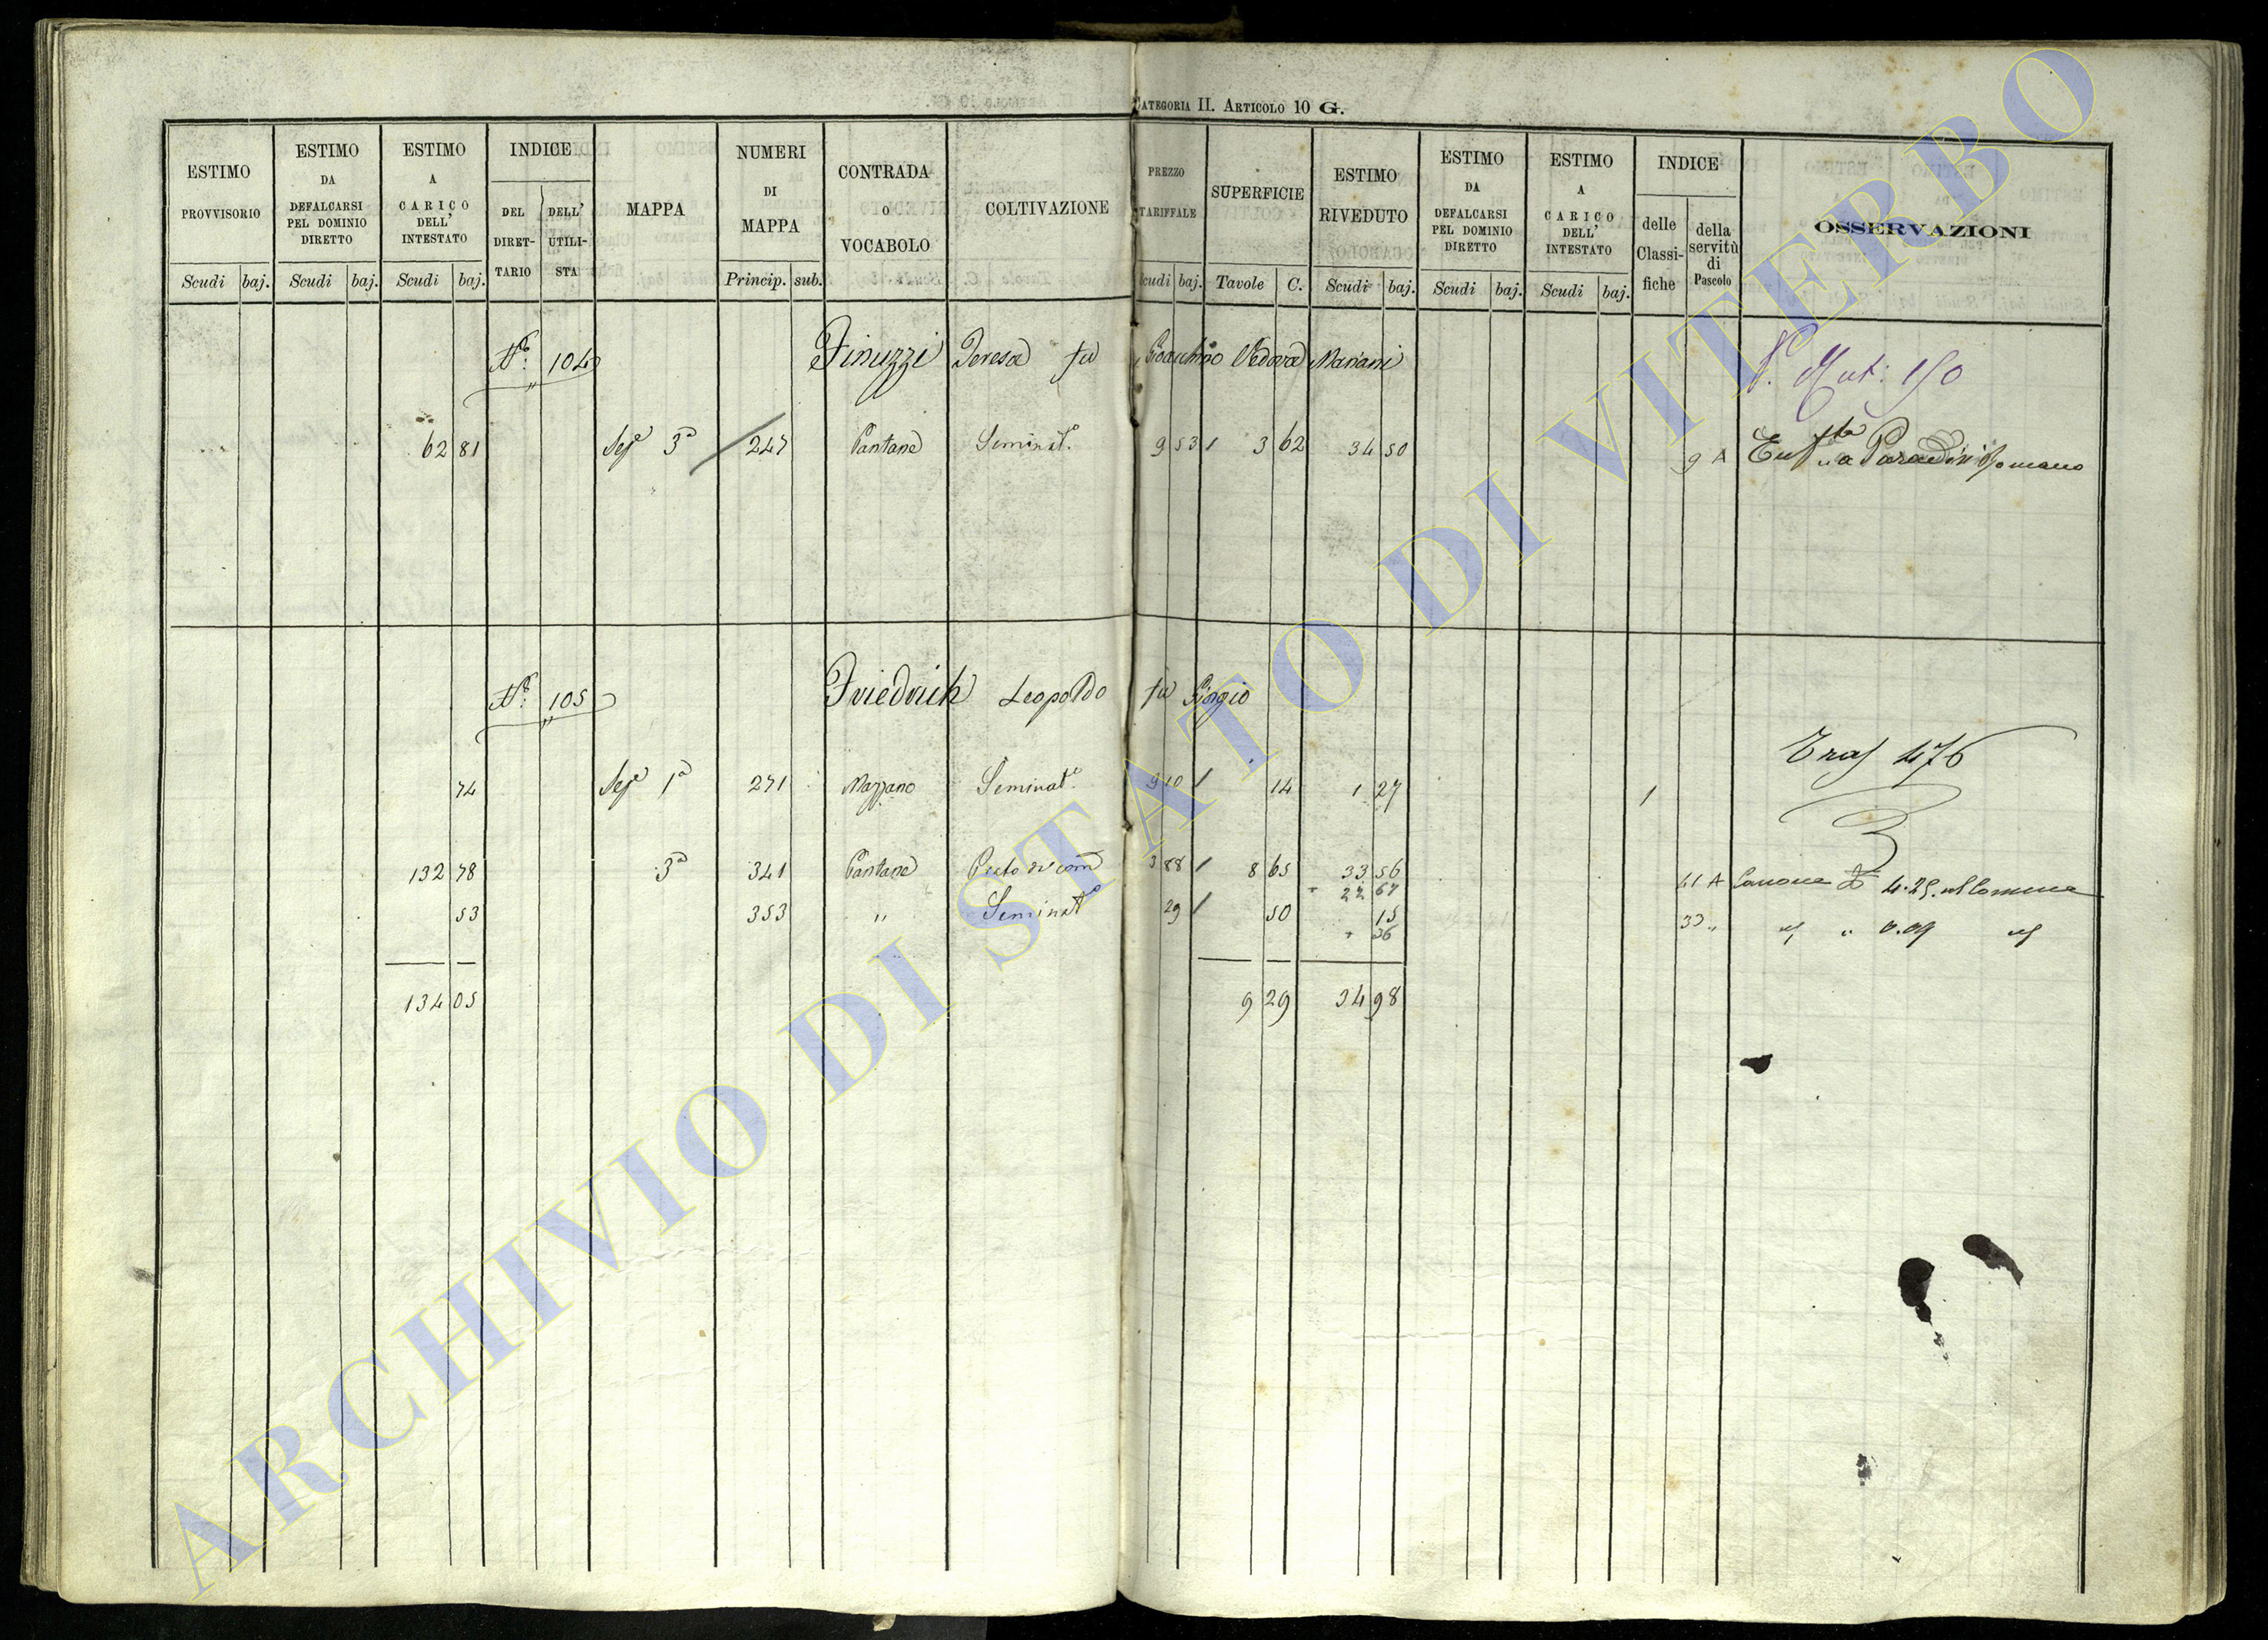 CATEGORIA II. ARTICOLO 10 G.
ESTIMO PROVVISORIO Scudi baj.
ESTIMO DA DEFALCARSI PEL DOMINIO DIRETTO Scudi baj.
ESTIMO A CARICO DELL' INTESTATO Scudi baj.
INDICE DEL DIRET- TARIO DELL' UTILI- STA
MAPPA
NUMERI DI MAPPA Princip. sub.
CONTRADA O VOCABOLO
COLTIVAZIONE
PREZZO TARIFFALE Scudi baj.
SUPERFICIE Tavole C.
ESTIMO RIVEDUTO Scudi baj.
ESTIMO DA DEFALCARSI PEL DOMINIO DIRETTO Scudi baj.
ESTIMO A CARICO DELL' INTESTATO Scudi baj.
INDICE delle Classi- fiche della servitù di Pascolo
OSSERVAZIONI
N.° 104 Finuzzi Teresa fu Gioacchino Vedova Mariani
Mut: 150
62 81 Sez.e 3a 247 Pantane Seminat.o 9 53 1 3 62 34 50 9 A
N.° 105 Friedrich Leopoldo fu Giorgio
Tras 476
74 Sez.e 1a 271 Mazzano Seminat.o 9 10 1 14 1 27 1
132 78 3a 341 Pantane Prato 3 88 1 8 65 33 56 41 A Canone di 4.25
+ 22 67
53 353 " Seminat.o 29 1 50 15 33 " " 0.09
+ 36
134 05 9 29 34 98
ARCHIVIO DI STATO DI VITERBO